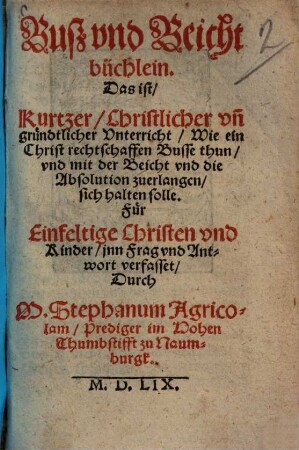 Buß vnd Beicht
büchlein.
Das ist/
Kurtzer/ Christlicher vn̄
gründtlicher Vnterricht/ Wie ein
Christ rechtschaffen Busse thun/
vnd mit der Beicht vnd die
Absolution zuerlangen/
sich halten solle.
Für
Einfeltige Christen vnd
Kinder/ inn Frag vnd Ant-
wort verfasset/
Durch
M. Stephanum Agrico-
lam/ Prediger im Hohen
Thumbstifft zu Naum-
burgk.
M. D. LIX.
2